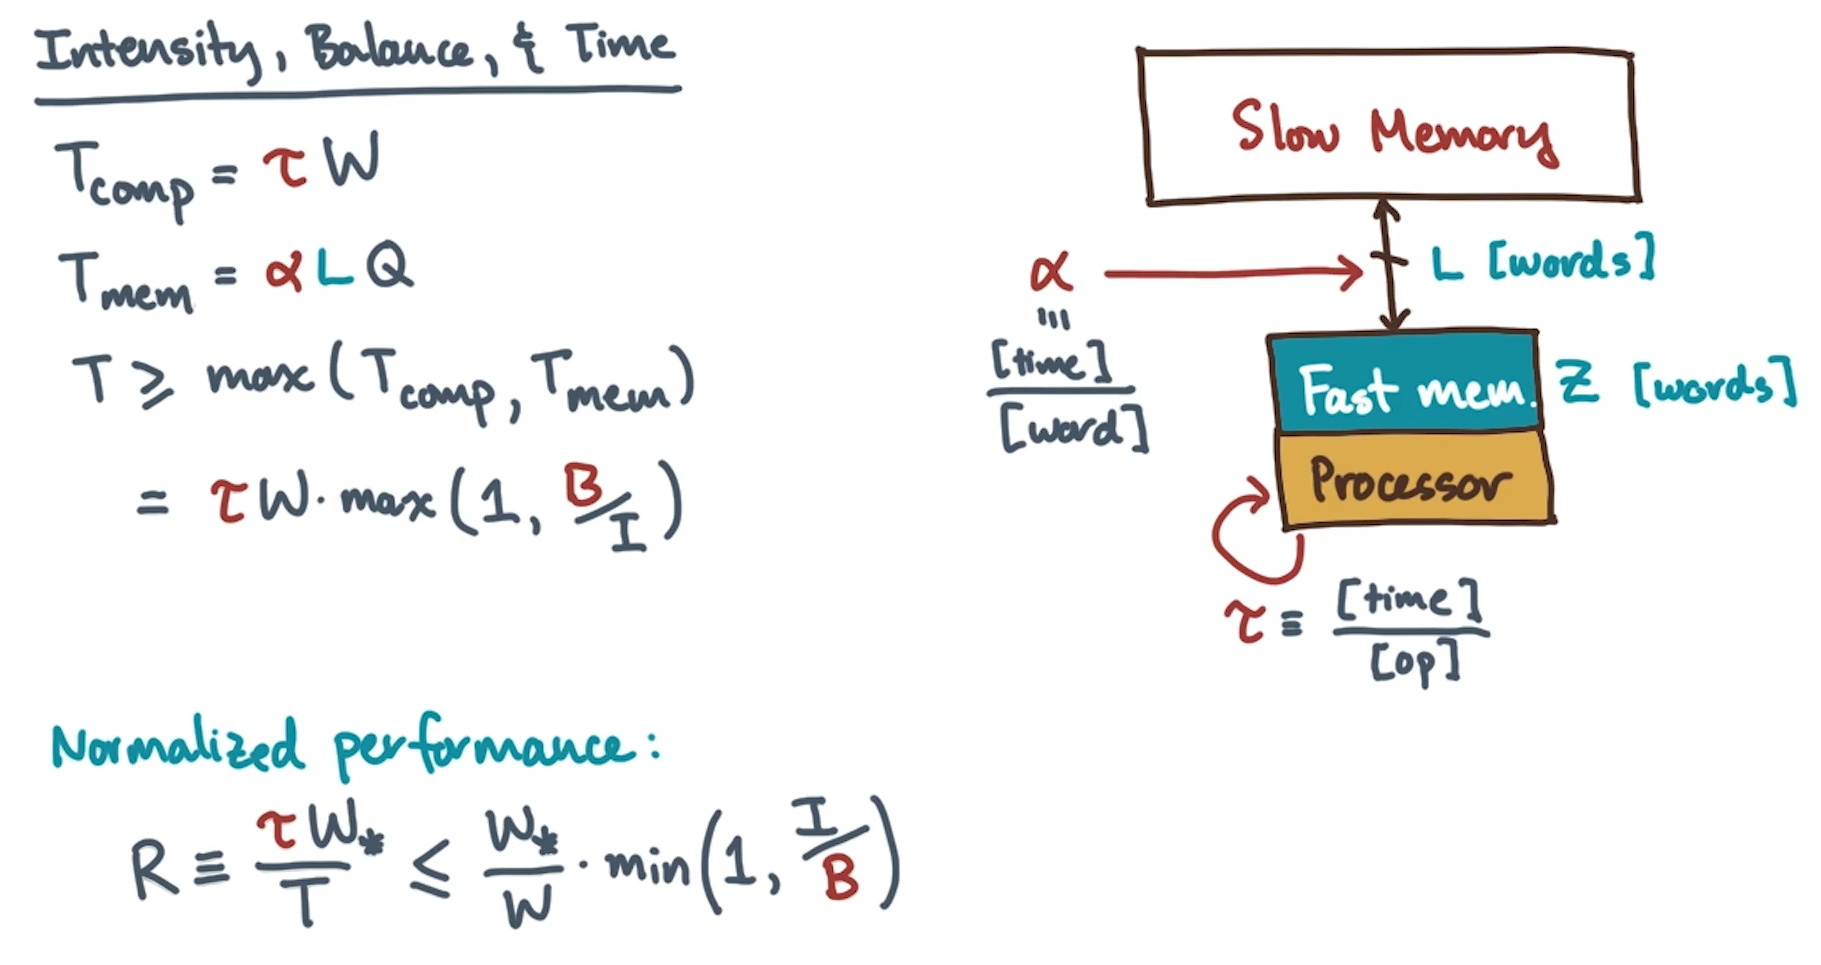 Intensity, Balance, & Time
T_comp = τ W
T_mem = α L Q
T ⩾ max (T_comp, T_mem)
= τ W · max (1, B/I)
Normalized performance:
R ≡ τW_*/T ≤ W_*/W · min (1, I/B)
Slow Memory
α
L [words]
≡
[time]
[word]
Fast mem.
Z [words]
Processor
τ ≡ [time]/[op]